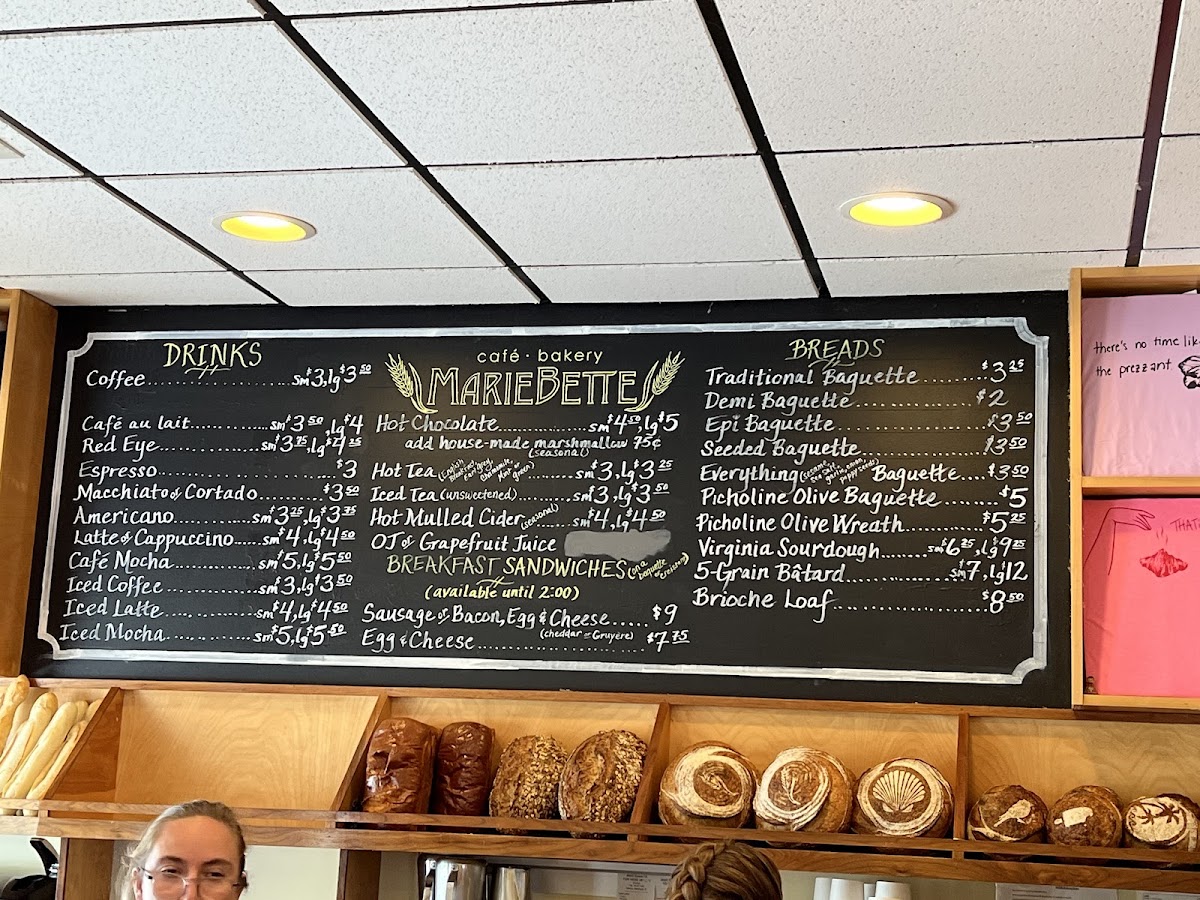 DRINKS
Coffee sm $3, lg $3.50
Café au lait sm $3.50, lg $4
Red Eye sm $3.75, lg $4.25
Espresso $3
Macchiato or Cortado $3.50
Americano sm $3.25, lg $3.75
Latte or Cappuccino sm $4, lg $4.50
Café Mocha sm $5, lg $5.50
Iced Coffee sm $3, lg $3.50
Iced Latte sm $4, lg $4.50
Iced Mocha sm $5, lg $5.50
café · bakery
MARIEBETTE
Hot Chocolate sm $4.50, lg $5
add house-made marshmallow 75¢
(seasonal)
Hot Tea (English breakfast, earl grey, chamomile, mint or green) sm $3, lg $3.25
Iced Tea (unsweetened) sm $3, lg $3.50
Hot Mulled Cider (seasonal) sm $4, lg $4.50
OJ or Grapefruit Juice
BREAKFAST SANDWICHES (on a baguette or croissant)
(available until 2:00)
Sausage or Bacon, Egg & Cheese $9
(cheddar or Gruyère)
Egg & Cheese $7.75
BREADS
Traditional Baguette $3.25
Demi Baguette $2
Epi Baguette $3.50
Seeded Baguette $3.50
Everything (sesame, sea salt, garlic, onion, poppy seeds) Baguette $3.50
Picholine Olive Baguette $5
Picholine Olive Wreath $5.25
Virginia Sourdough sm $6.25, lg $9.25
5-Grain Bâtard sm $7, lg $12
Brioche Loaf $8.50
there's no time like
the prezzant
THAT